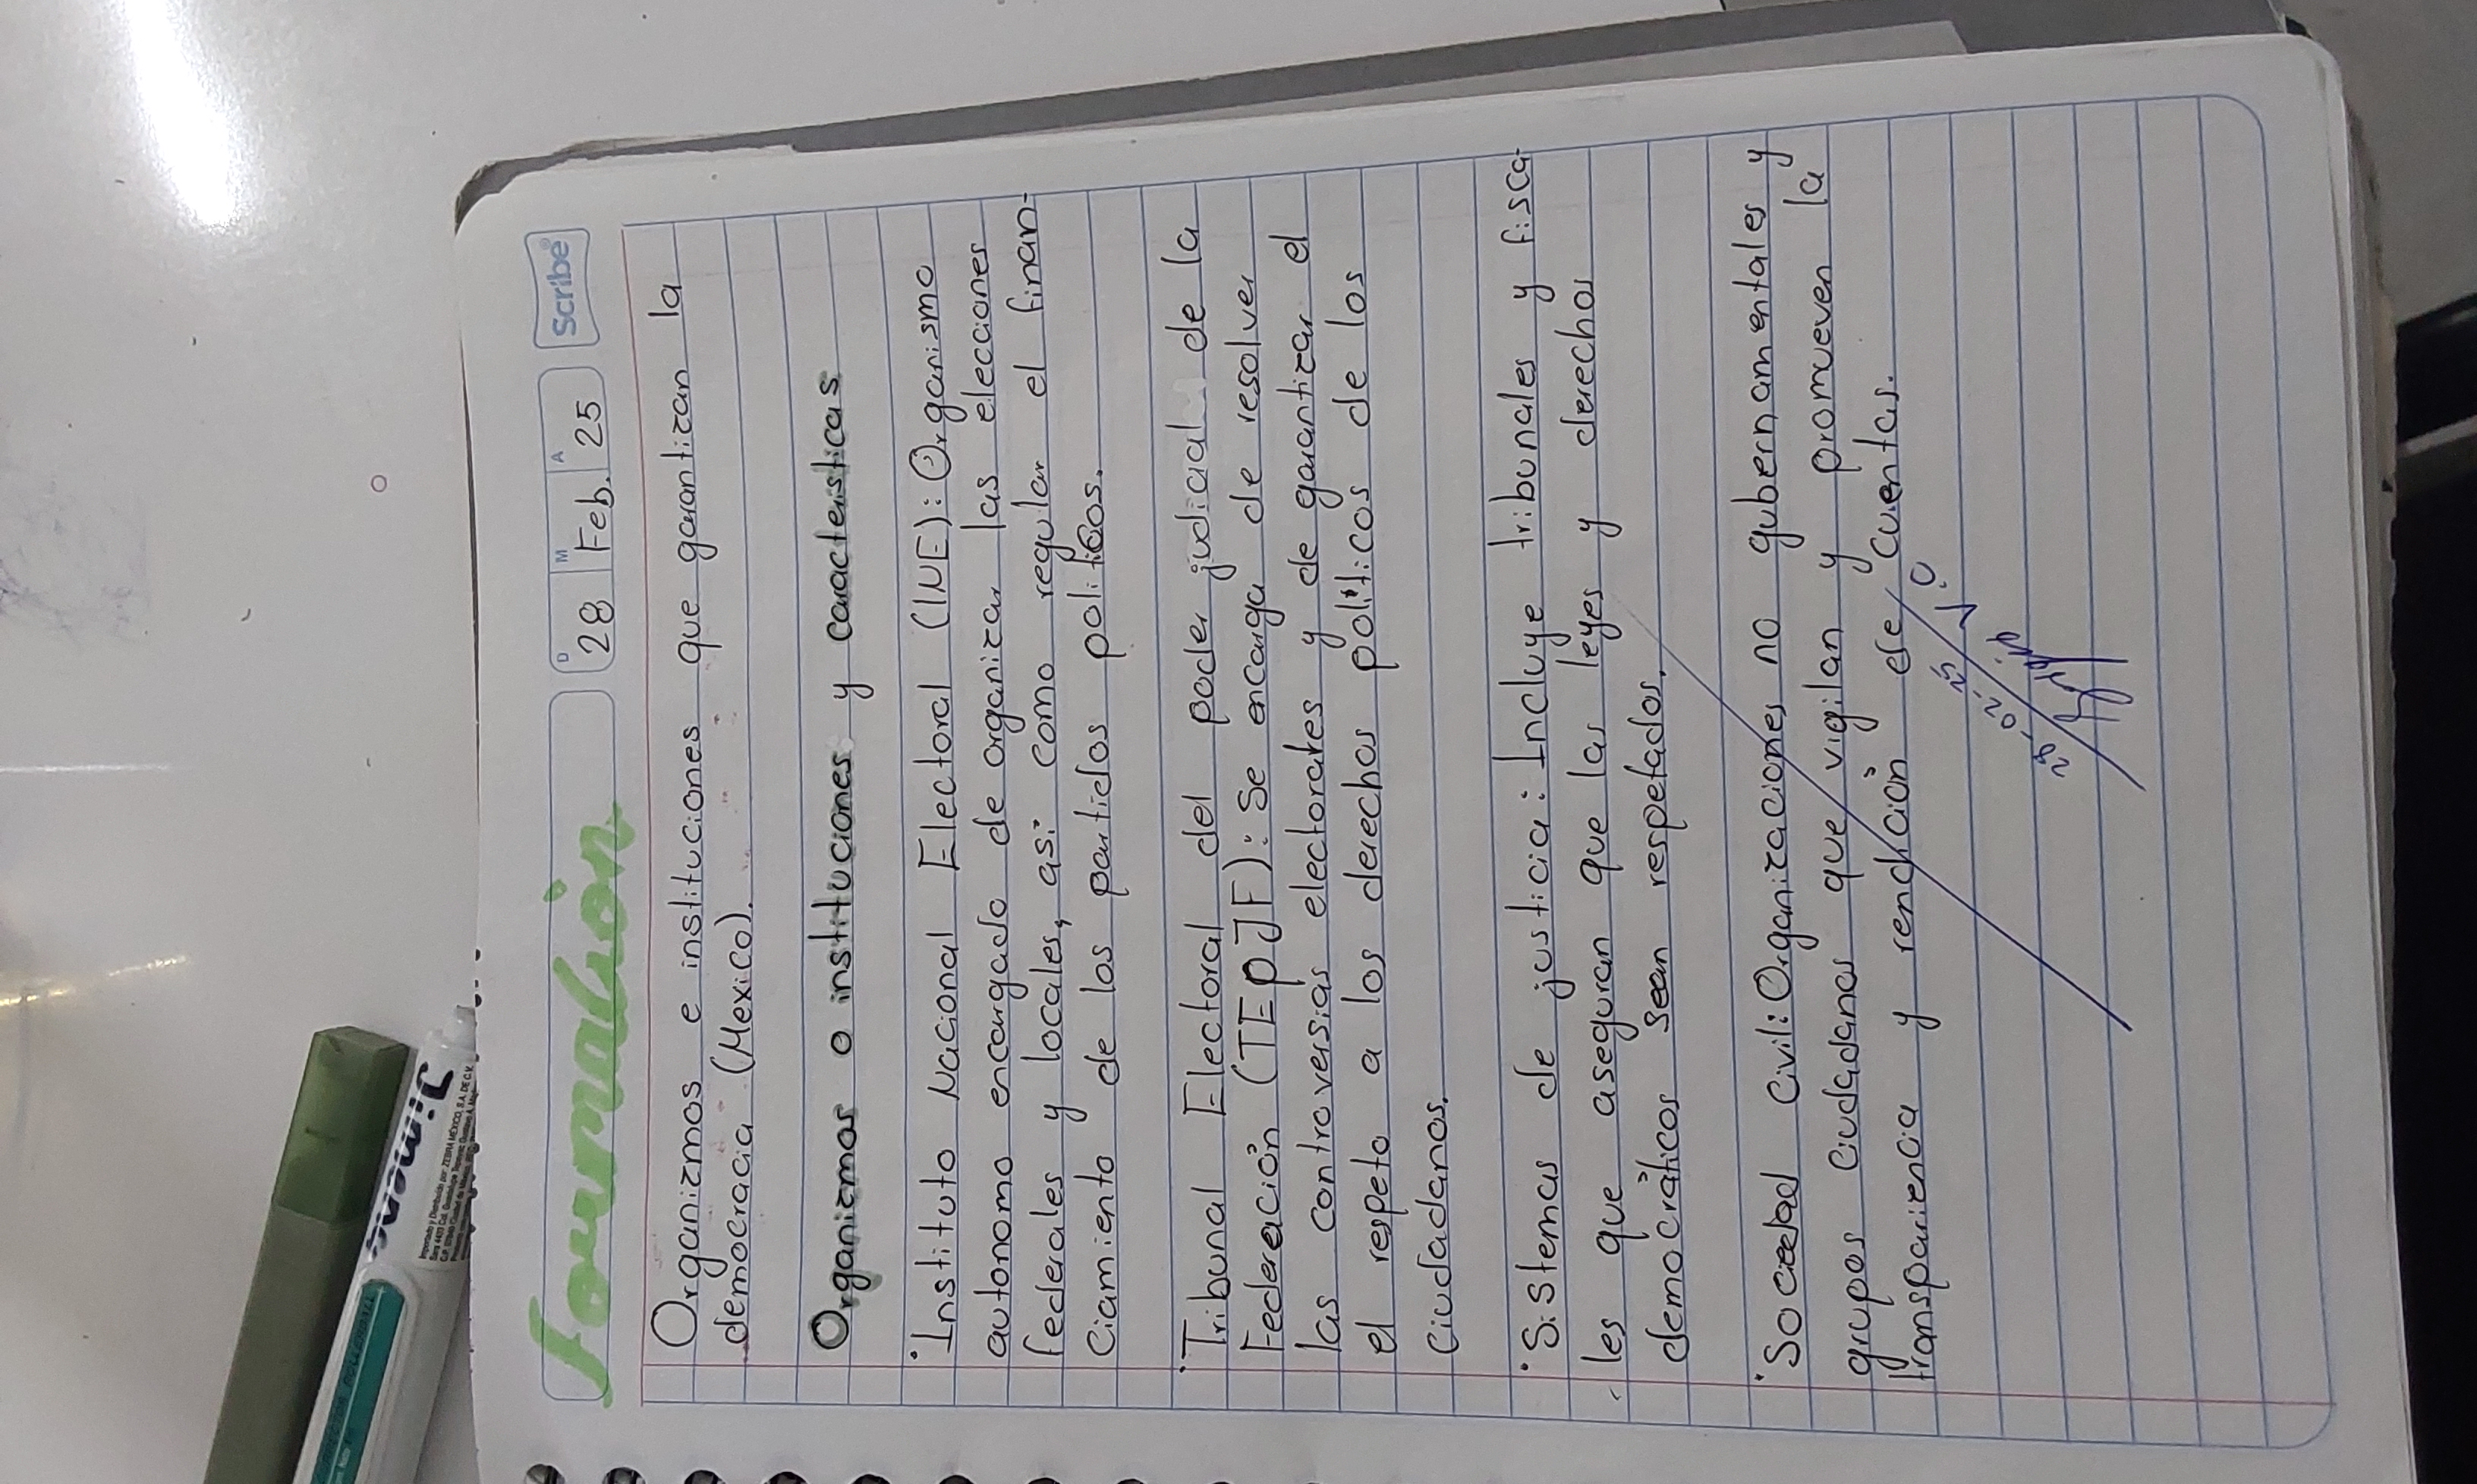 Formación
D M A
28 Feb. 25
Scribe
Organizmos e instituciones que garantizan la
democracia (Mexico).
Organizmos o instituciones y caracteristicas
·Instituto Nacional Electoral (INE): Organismo
autonomo encargado de organizar las elecciones
federales y locales, asi como regular el finan-
ciamiento de los partidos politicos.
·Tribunal Electoral del poder judicial de la
Federación (TEPJF): Se encarga de resolver
las controversias electorales y de garantizar el
el respeto a los derechos politicos de los
ciudadanos.
·Sistemas de justicia: Incluye tribunales y fisca-
les que aseguran que las leyes y derechos
democráticos sean respetados.
·Sociedad civil: Organizaciones no gubernamentales y
grupos ciudadanos que vigilan y promueven la
transpariencia y rendición de cuentas.
JIMNIE